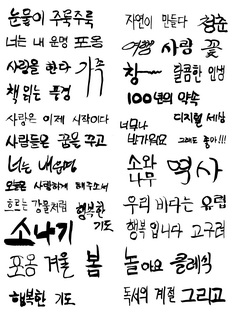 눈물이 주룩주룩
너는 내 운명 포옹
사랑을 한다 가족
책 읽는 풍경
사랑은 이제 시작이다
사람들은 꿈을 꾸고
너는 내운명
오늘은 사랑하게 해주소서
흐르는 강물처럼 행복한 기도
소나기
포옹 겨울 봄
행복한 기도
자연이 만들다 청춘
여행 사람 꽃
창~ 달콤한 인생
100년의 약속
너무나 반가워요 디지털 세상
그래도 좋아!!!
소와 나무 역사
우리 바다는 유럽
행복입니다 고구려
놀아요 클래식
독서의 계절 그리고